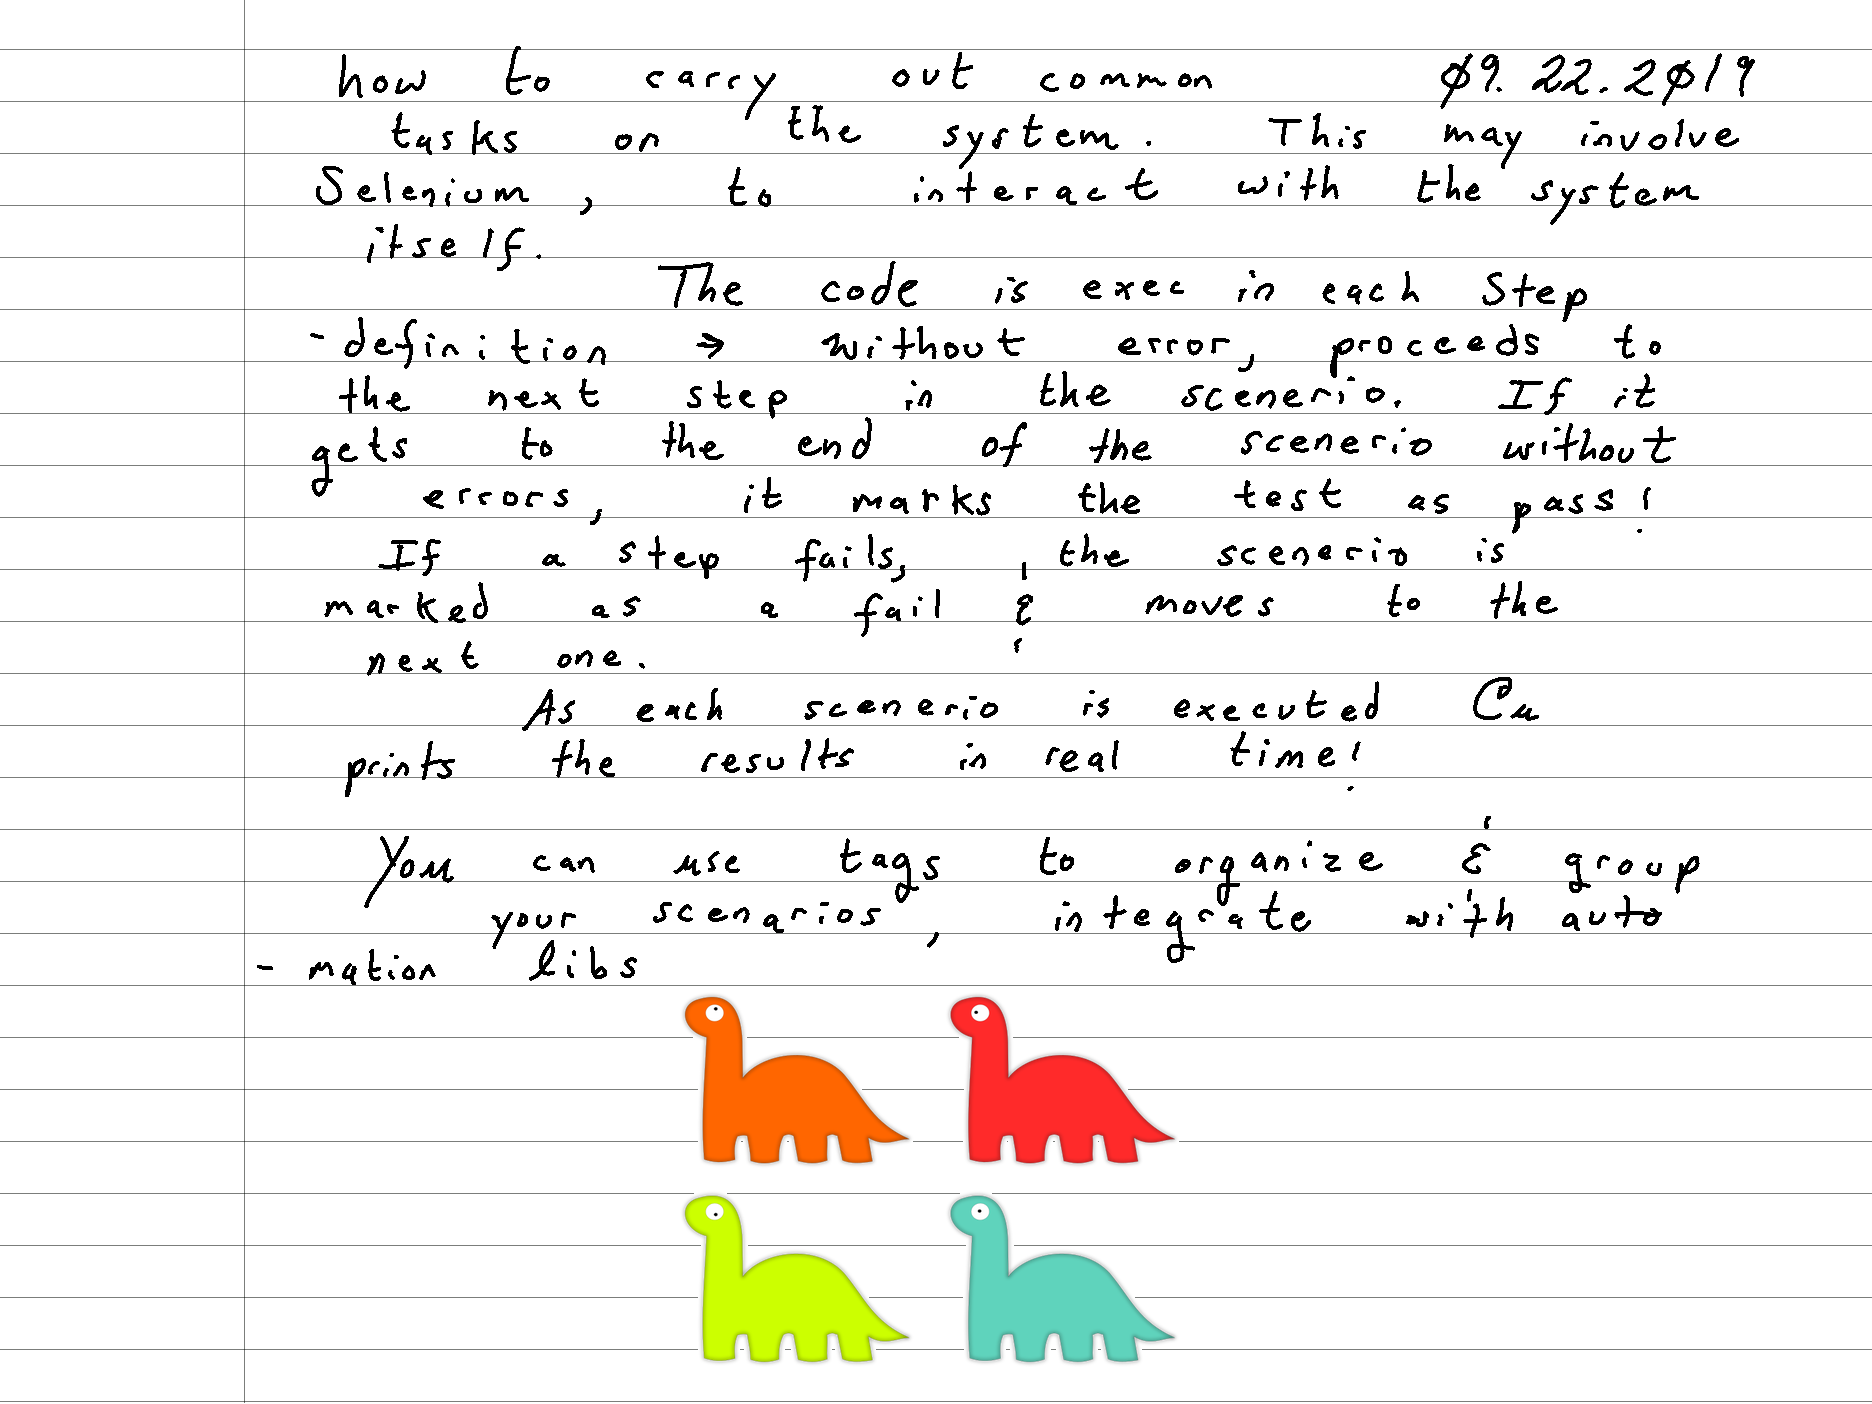 how to carry out common 09.22.2019
tasks on the system. This may involve
Selenium, to interact with the system
itself.
The code is exec in each Step
-definition → without error, proceeds to
the next step in the scenerio. If it
gets to the end of the scenerio without
errors, it marks the test as pass!
If a step fails, the scenerio is
marked as a fail & moves to the
next one.
As each scenerio is executed Cu
prints the results in real time!
You can use tags to organize & group
your scenarios, integrate with auto
- mation libs